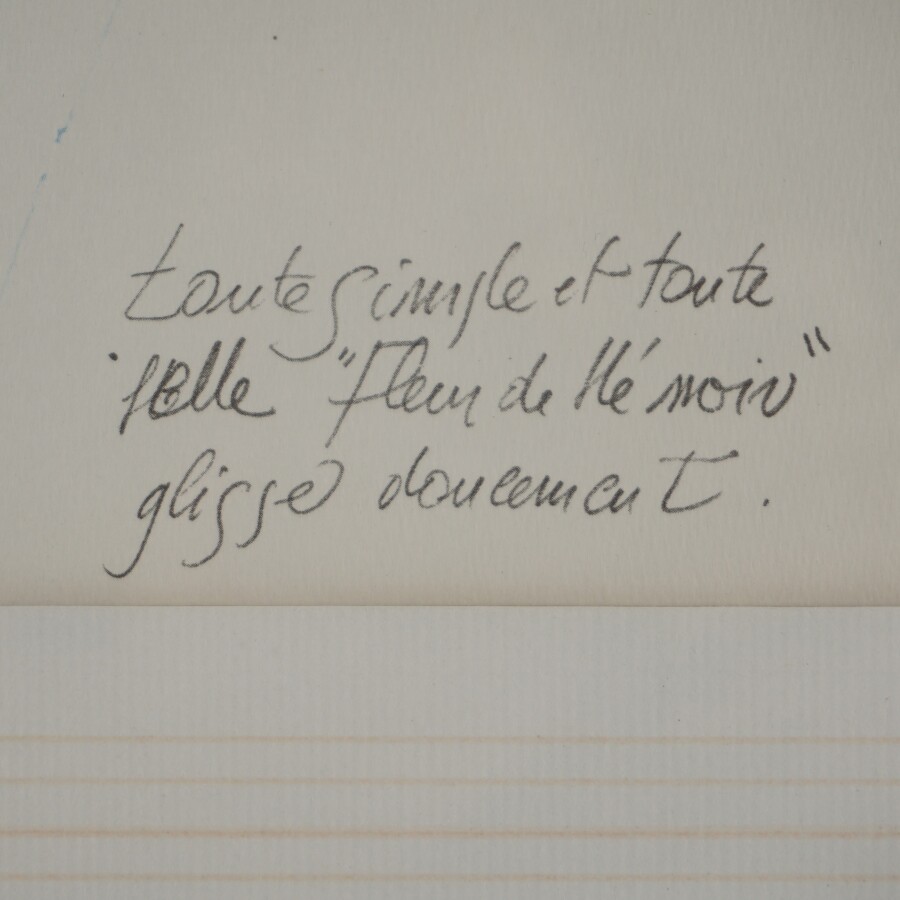 toute simple et toute
belle "fleur de blé noir"
glisse doucement.